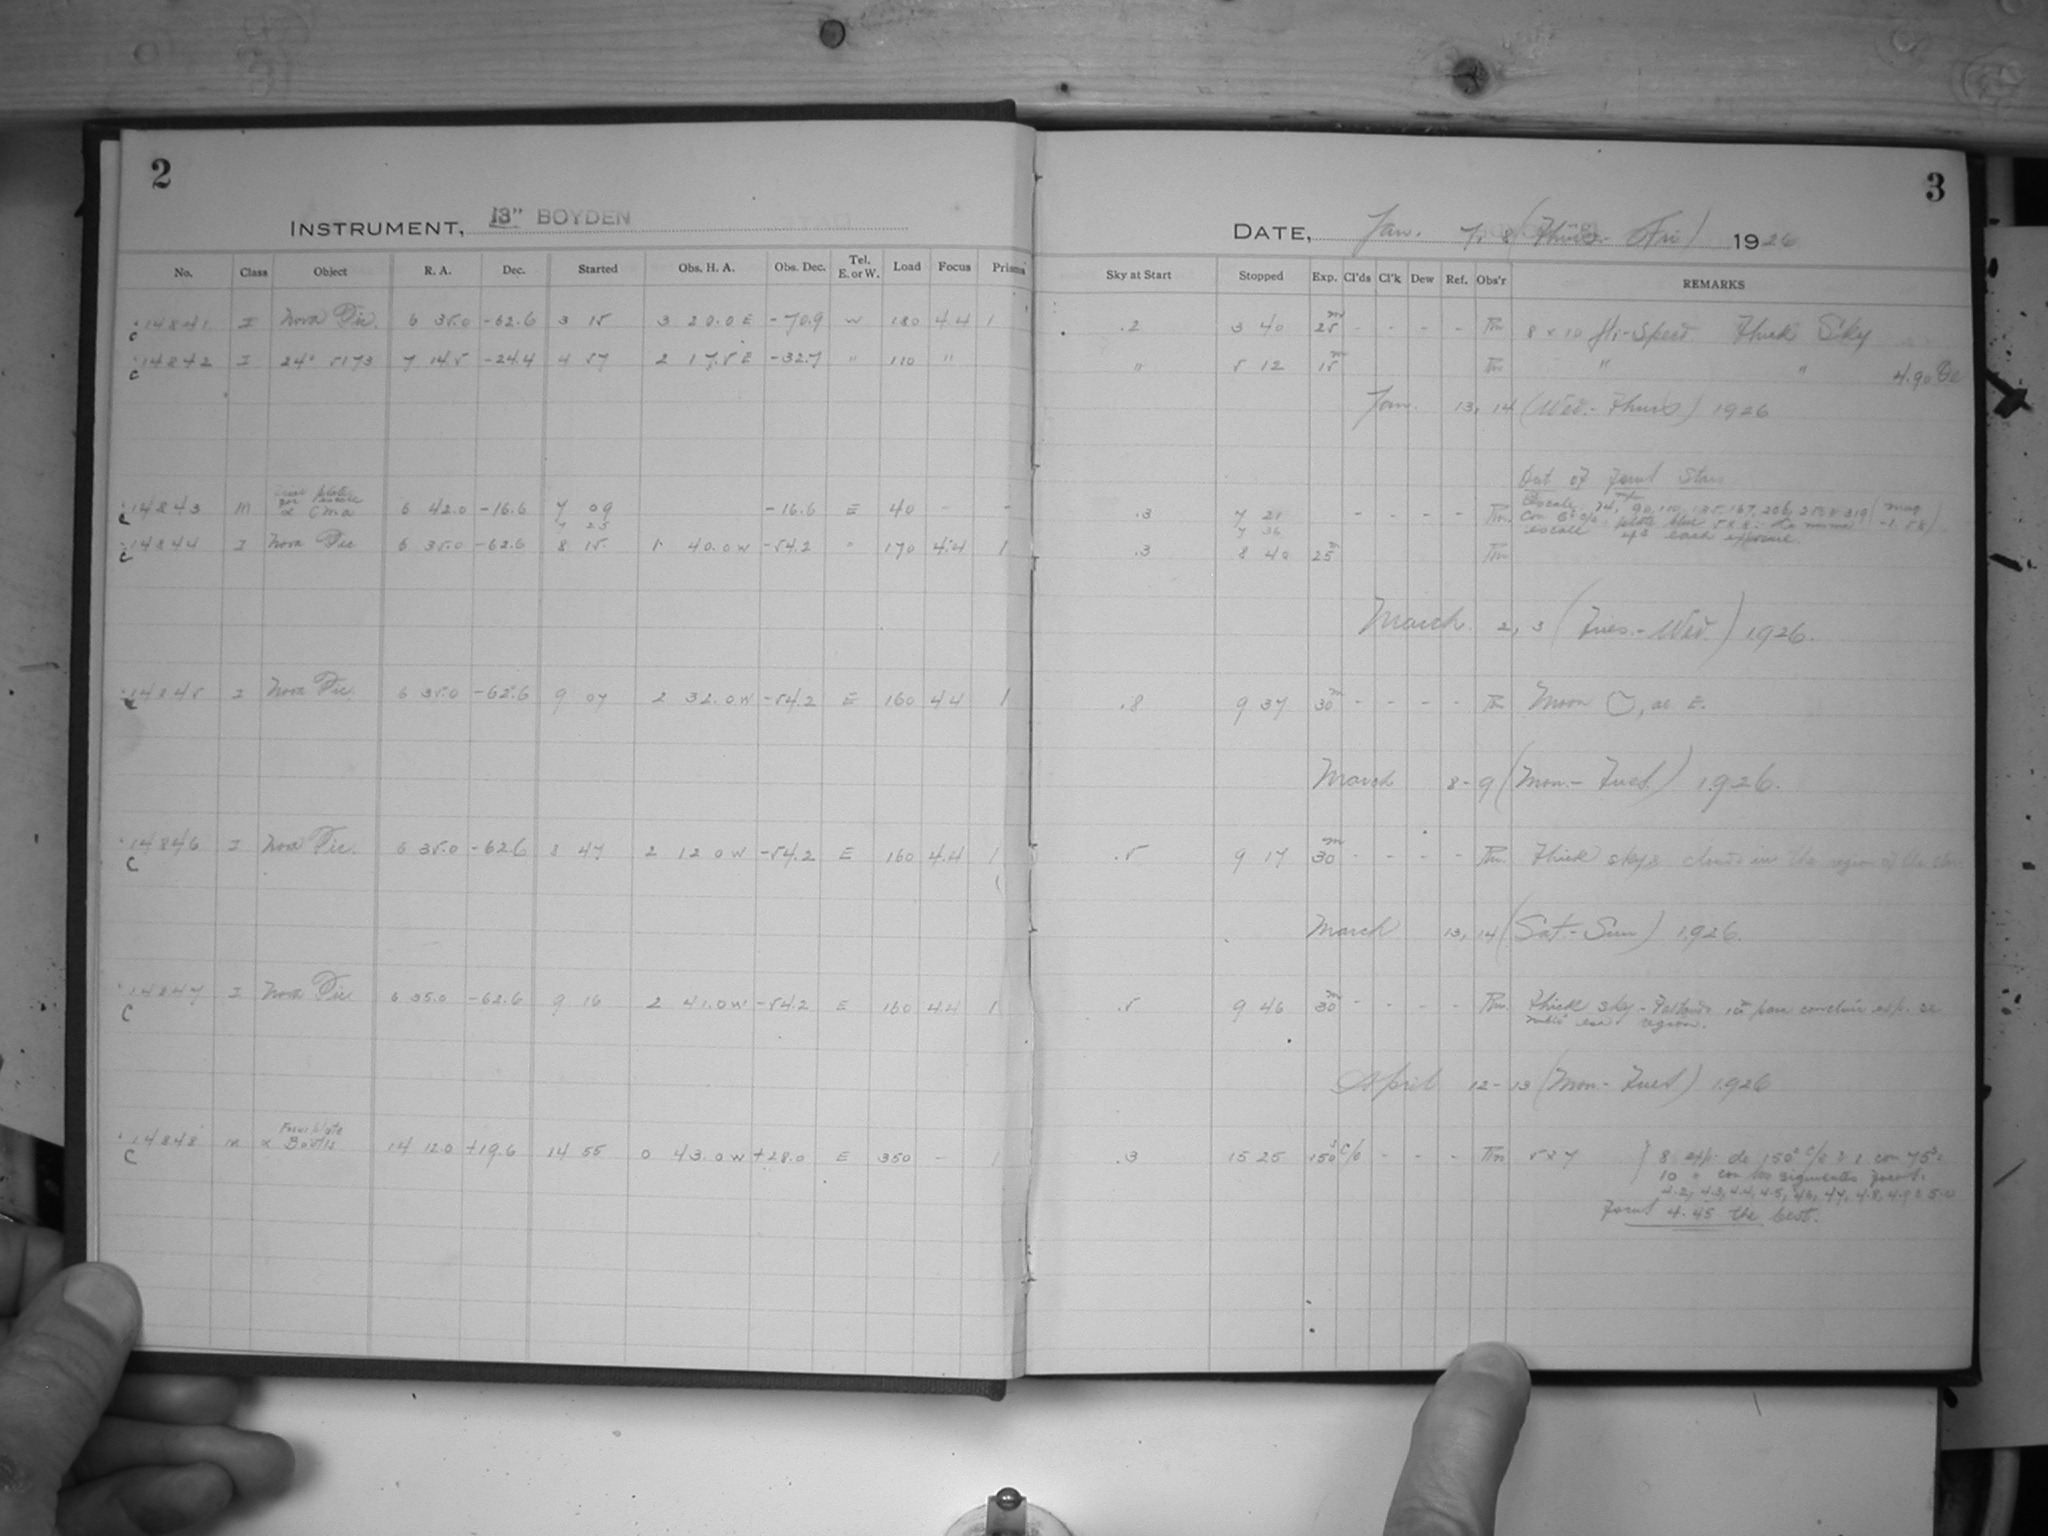 2
INSTRUMENT, 13" BOYDEN
No. Class Object R. A. Dec. Started Obs. H. A. Obs. Dec. Tel. E. or W. Load Focus Prisms
14841 I Nova Pic. 6 35.0 -62.6 3 15 3 20.0 E -70.9 W 180 4.4 1
C
14842 I 24° 5173 7 14.5 -24.4 4 57 2 17.5 E -32.7 " 110 "
C
14843 M α C Ma 6 42.0 -16.6 7 09 -16.6 E 40 - -
C 7 25
14844 I Nova Pic 6 35.0 -62.6 8 15 1 40.0 W -54.2 " 170 4.4 1
C
14845 I Nova Pic. 6 35.0 -62.6 9 07 2 32.0 W -54.2 E 160 4.4 1
C
14846 I Nova Pic. 6 35.0 -62.6 8 47 2 12.0 W -54.2 E 160 4.4 1
C
14847 I Nova Pic 6 35.0 -62.6 9 16 2 41.0 W -54.2 E 160 4.4 1
C
Focus plate
14848 M α Bootis 14 12.0 +19.6 14 55 0 43.0 W +28.0 E 350 - 1
C
3
DATE, Jan. 7, 8 (Thurs.- Fri) 1926
Sky at Start Stopped Exp. Cl'ds Cl'k Dew Ref. Obs'r REMARKS
.2 3 40 25m - - - - 8 x 10 Hi-Speed. Thick Sky
" 5 12 15m " " 4.90
Jan. 13, 14 (Wed.- Thurs) 1926
Out of Focus Stars
.3 7 21 - - - - Escale 74, 90, 110, 135, 167, 206, 255 & 319
7 36 escale each exposure.
.3 8 40 25m
March 2, 3 (Tues.- Wed.) 1926.
.8 9 37 30m - - - - Moon E.
March 8-9 (Mon.- Tues.) 1926.
.5 9 17 30m - - - - Thick sky & clouds in the region of the
March 13, 14 (Sat - Sun) 1926.
.5 9 46 30m - - - - Thick sky - para concluir exp. se
region.
April 12-13 (Mon.- Tues) 1926
.3 15 25 150s c/o - - - 5 x 7 } 8 exp. de 150s c/o & 1 con 75s
10 " con los siguientes focus.
4.2, 4.3, 4.4, 4.5, 4.6, 4.7, 4.8, 4.9 & 5.0
Focus 4.45 the best.